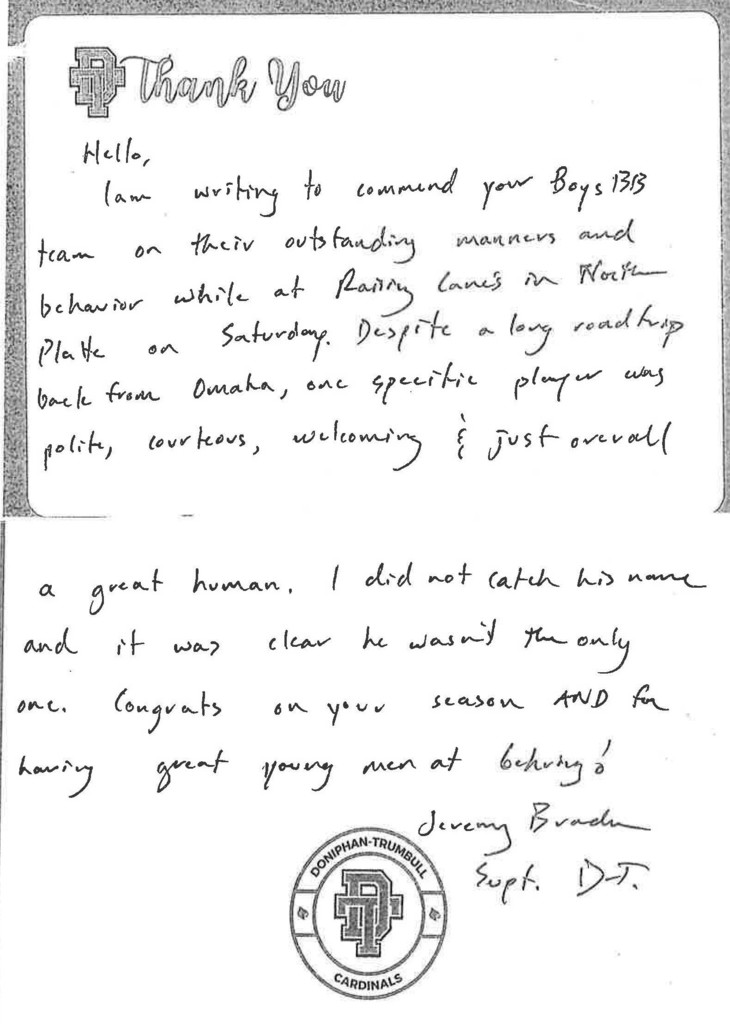 DT Thank You
Hello,
I am writing to commend your Boys BB
team on their outstanding manners and
behavior while at Raising Cane's in North
Platte on Saturday. Despite a long roadtrip
back from Omaha, one specific player was
polite, courteous, welcoming & just overall
a great human. I did not catch his name
and it was clear he wasn't the only
one. Congrats on your season AND for
having great young men at Gehring!
Jeremy Braden
Supt. D-T.
DONIPHAN-TRUMBULL
DT
CARDINALS